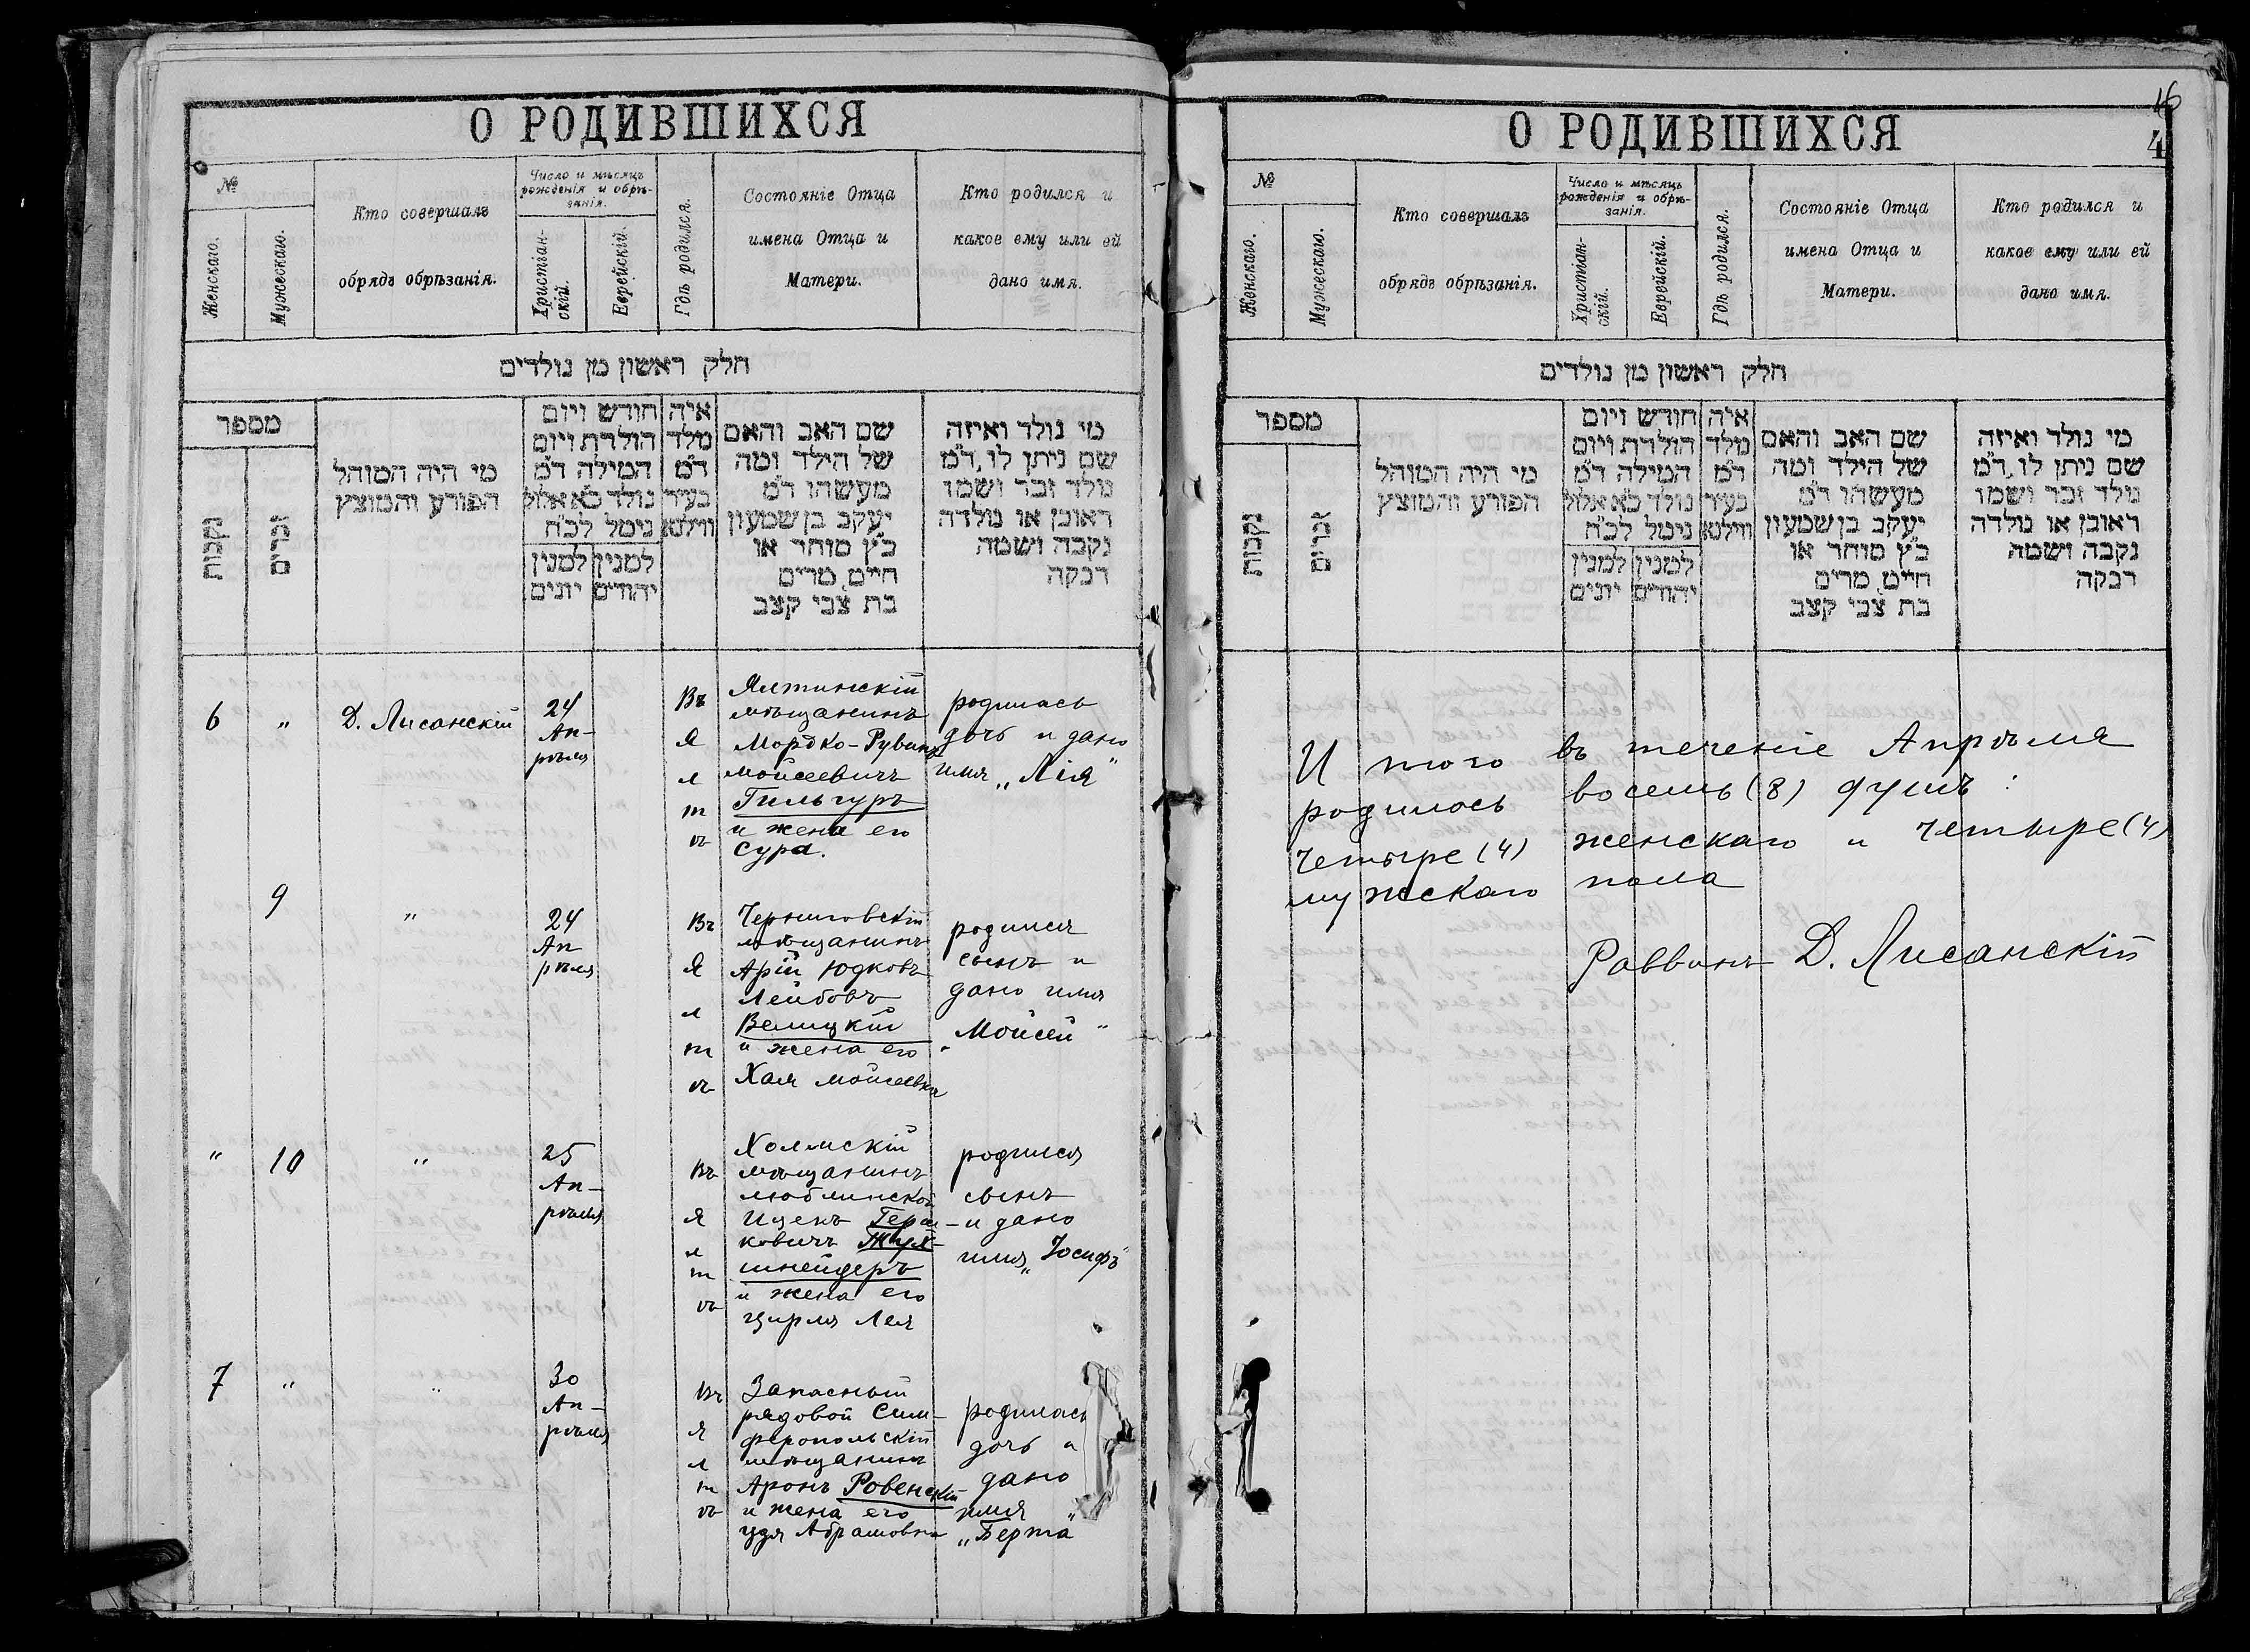 О РОДИВШИХСЯ
№
Женскаго.
Мужескаго.
Кто совершалъ
обрядъ обрѣзанія.
Число и мѣсяцъ
рожденія и обрѣ-
занія.
Христіан-
скій.
Еврейскій.
Гдѣ родился.
Состояніе Отца
имена Отца и
Матери.
Кто родился и
какое ему или ей
дано имя.
חלק ראשון מן נולדים
מספר
נקבות
זכרים
מי היה המוהל
הפורע והמוצץ
חודש ויום
הולדת ויום
המילה ד״מ
נולד כ״א אלול
נימל לכ״ח
למנין למנין
יהודים יונים
איה
מלד
ד״מ
בעיר
ווילנא
שם האב והאם
של הילד ומה
מעשהו ד״מ
יעקב בן שמעון
כ״ץ סוחר או
חיים, מרים
בת צבי קצב
מי נולד ואיזה
שם ניתן לו, ד״מ
נולד זכר ושמו
ראובן או נולדה
נקבה ושמה
רבקה
6 " Д. Лисанскій
24
Ап-
рѣля
Въ
Я
л
т
ѣ
Ялтинскій
мѣщанинъ
Мордко-Рувинъ
Мойсеевичъ
Гильгуръ
и жена его
Сура.
родилась
дочь и дано
имя „Лія"
9 "
24
Ап
рѣля
Въ
Я
л
т
ѣ
Черниговскій
мѣщанинъ
Арій Юдковъ
Лейбовъ
Велицкій
и жена его
Хая Мойсеевна
родился
сынъ и
дано имя
„Мойсей"
" 10 "
25
Ап-
рѣля
Въ
Я
л
т
ѣ
Холмскій
мѣщанинъ
люблинской
Ицекъ Герш-
ковичъ
шнейдеръ
и жена его
Цирля Лея
родился
сынъ
и дано
имя „Іосифъ"
7 " "
30
Ап-
рѣля
Въ
Я
л
т
ѣ
Запасный
рядовой Сим-
феропольскій
мѣщанинъ
Аронъ Ровенскій
и жена его
Удя Абрамовна
родилась
дочь и
дано
имя
„Берта"
16
4
О РОДИВШИХСЯ
№
Женскаго.
Мужескаго.
Кто совершалъ
обрядъ обрѣзанія.
Число и мѣсяцъ
рожденія и обрѣ-
занія.
Христіан-
скій.
Еврейскій.
Гдѣ родился.
Состояніе Отца
имена Отца и
Матери.
Кто родился и
какое ему или ей
дано имя.
חלק ראשון מן נולדים
מספר
נקבות
זכרים
מי היה המוהל
הפורע והמוצץ
חודש ויום
הולדת ויום
המילה ד״מ
נולד כ״א אלול
נימל לכ״ח
למנין למנין
יהודים יונים
איה
מלד
ד״מ
בעיר
ווילנא
שם האב והאם
של הילד ומה
מעשהו ד״מ
יעקב בן שמעון
כ״ץ סוחר או
חיים, מרים
בת צבי קצב
מי נולד ואיזה
שם ניתן לו, ד״מ
נולד זכר ושמו
ראובן או נולדה
נקבה ושמה
רבקה
И того въ теченіе Апрѣля
родилось восемь (8) душъ:
четыре (4) женскаго и четыре (4)
мужскаго пола
Раввинъ Д. Лисанскій